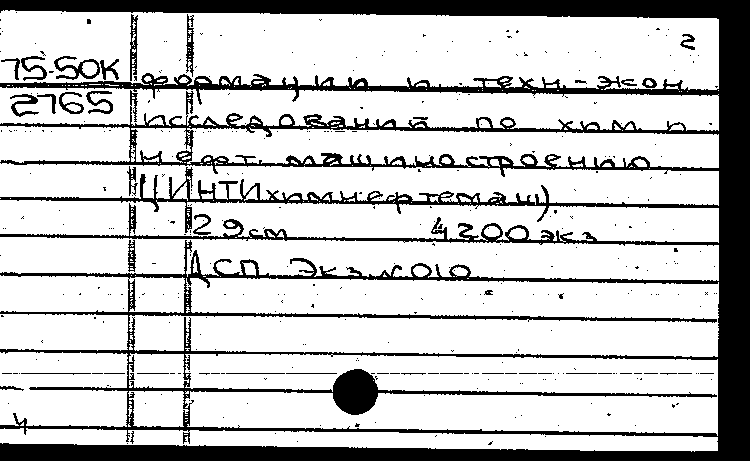 2
75-50К формации и техн.-экон.
2765
исследований по хим. и
нефт. машиностроению
(ЦИНТИхимнефтемаш).
29см 4200 экз
ДСП Экз.№010
Ч